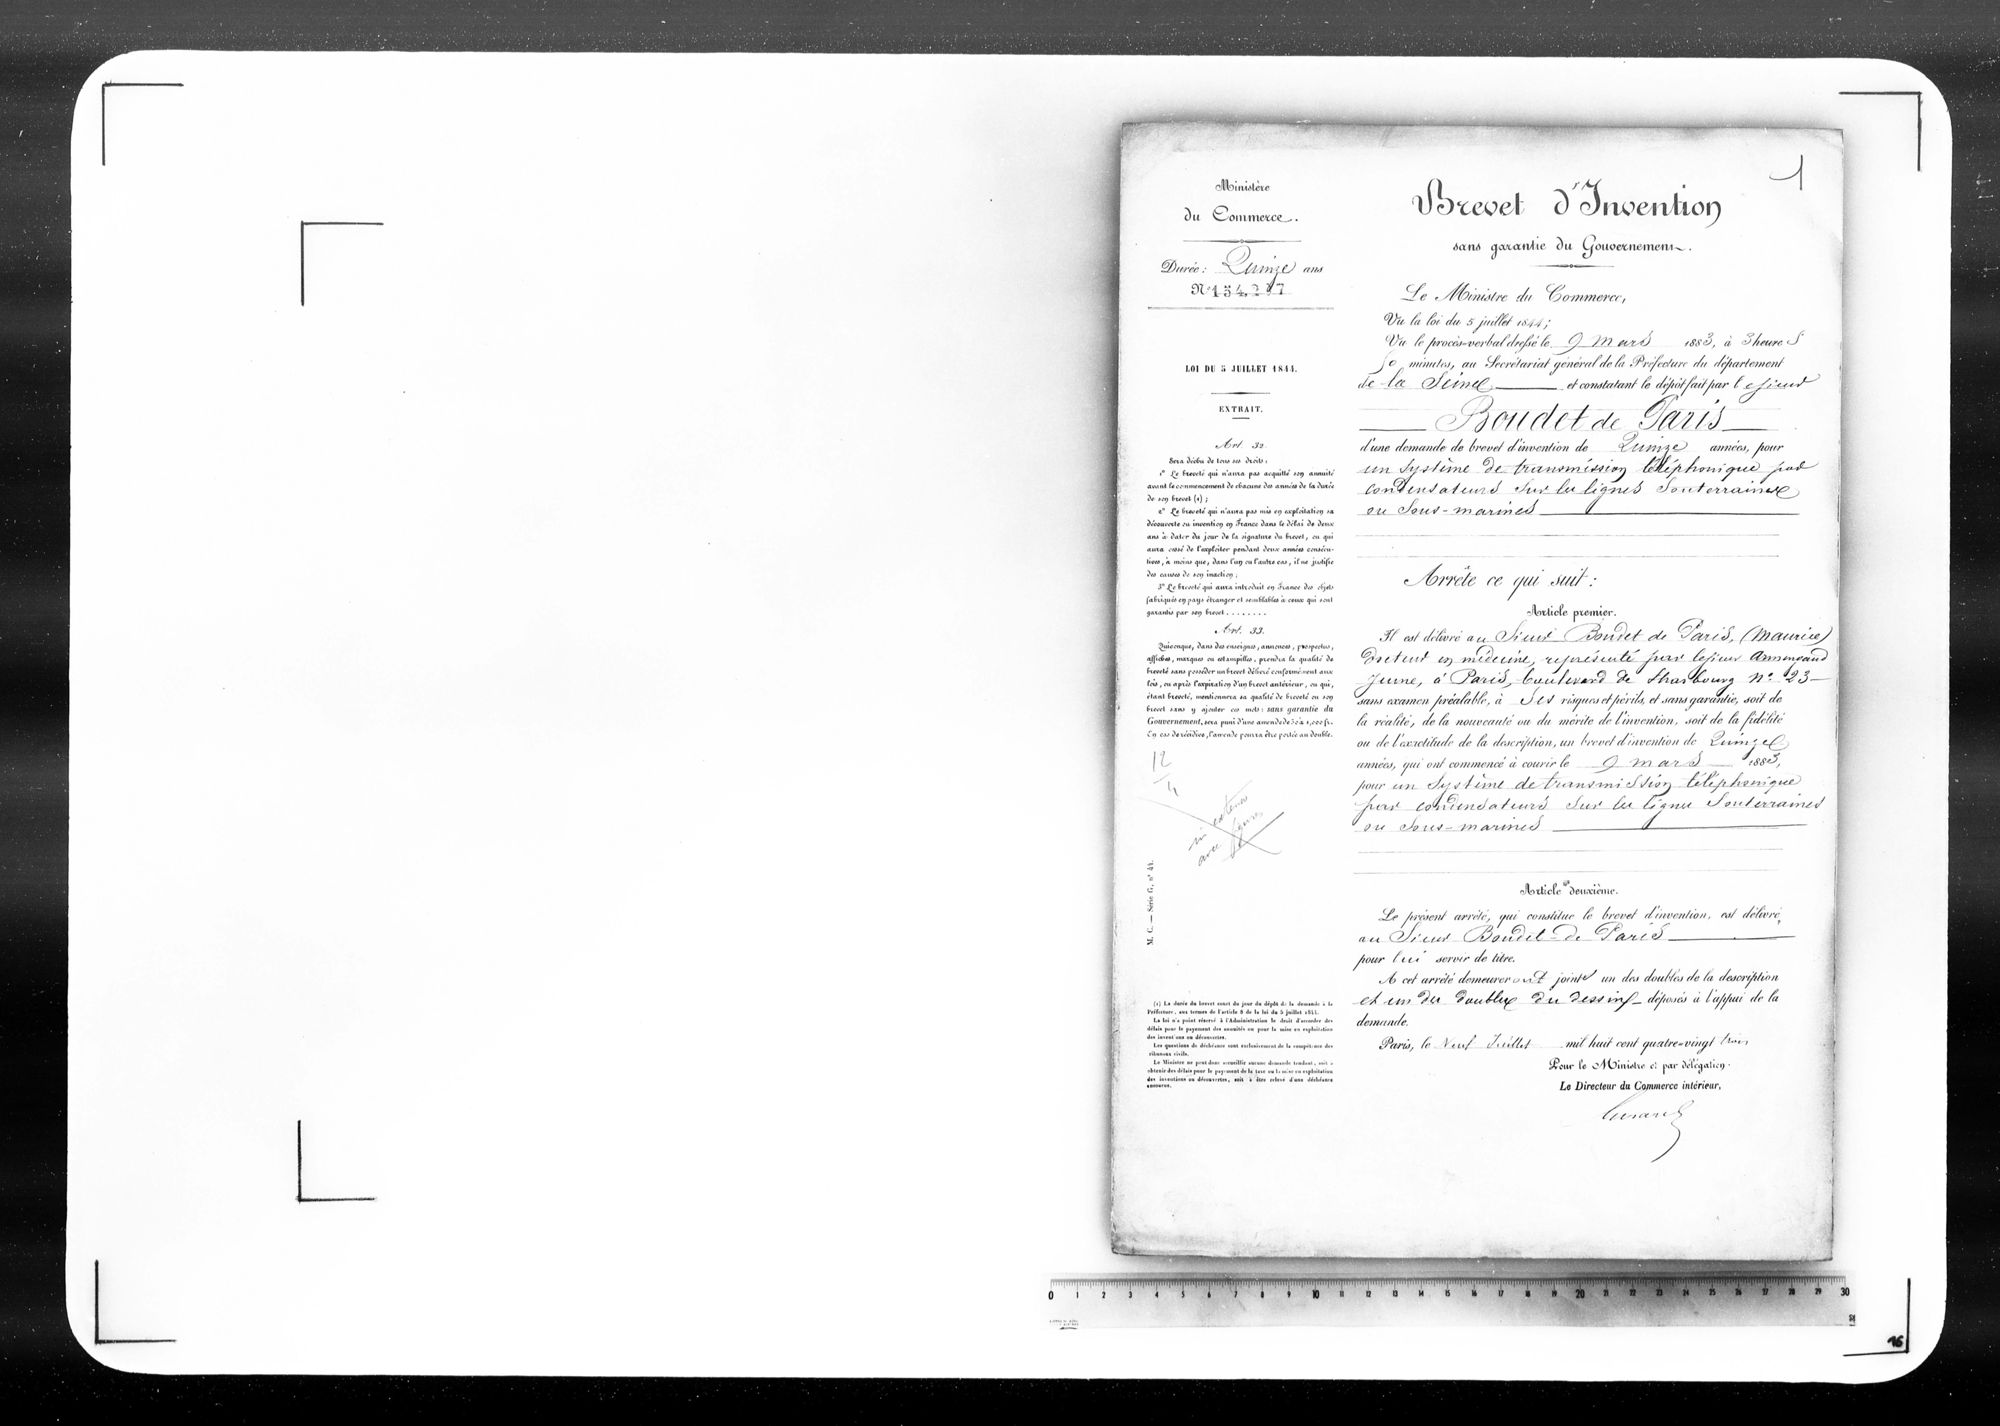 1
Ministère
du Commerce.
Durée: Quinze ans
N° 154,2 7
LOI DU 5 JUILLET 1844.
EXTRAIT.
Art. 32.
Sera déchu de tous ses droits:
1° Le breveté qui n'aura pas acquitté son annuité
avant le commencement de chacune des années de la durée
de son brevet (1);
2° Le breveté qui n'aura pas mis en exploitation sa
découverte ou invention en France dans le délai de deux
ans à dater du jour de la signature du brevet, ou qui
aura cessé de l'exploiter pendant deux années consécu-
tives, à moins que, dans l'un ou l'autre cas, il ne justifie
des causes de son inaction;
3° Le breveté qui aura introduit en France des objets
fabriqués en pays étranger et semblables à ceux qui sont
garantis par son brevet........
Art. 33.
Quiconque, dans des enseignes, annonces, prospectus,
affiches, marques ou estampilles, prendra la qualité de
breveté sans posséder un brevet délivré conformément aux
lois, ou après l'expiration d'un brevet antérieur, ou qui,
étant breveté, mentionnera sa qualité de breveté ou son
brevet sans y ajouter ces mots: sans garantie du
Gouvernement, sera puni d'une amende de 50 à 1,000 fr.
En cas de récidive, l'amende pourra être portée au double.
12
4
in extenso
avec figures
M. C. — Série G, n° 44.
(1) La durée du brevet court du jour du dépôt de la demande à la
Préfecture, aux termes de l'article 8 de la loi du 5 juillet 1844.
La loi n'a point réservé à l'Administration le droit d'accorder des
délais pour le payement des annuités ou pour la mise en exploitation
des inventions ou découvertes.
Les questions de déchéance sont exclusivement de la compétence des
tribunaux civils.
Le Ministre ne peut donc accueillir aucune demande tendant, soit à
obtenir des délais pour le payement de la taxe ou la mise en exploitation
des inventions ou découvertes, soit à être relevé d'une déchéance
encourue.
Brevet d'Invention
sans garantie du Gouvernement.
Le Ministre du Commerce,
Vu la loi du 5 juillet 1844;
Vu le procès-verbal dressé le 9 Mars 1883, à 3 heures
50 minutes, au Secrétariat général de la Préfecture du département
de la Seine et constatant le dépôt fait par le sieur
Boudet de Paris
d'une demande de brevet d'invention de Quinze années, pour
un système de transmission téléphonique par
condensateurs sur les lignes souterraines
ou sous-marines
Arrête ce qui suit:
Article premier.
Il est délivré au Sieur Boudet de Paris, (Maurice)
docteur en médecine, représenté par le sieur Armengaud
jeune, à Paris, boulevard de Strasbourg n° 23
sans examen préalable, à ses risques et périls, et sans garantie, soit de
la réalité, de la nouveauté ou du mérite de l'invention, soit de la fidélité
ou de l'exactitude de la description, un brevet d'invention de Quinze
années, qui ont commencé à courir le 9 Mars 1883,
pour un système de transmission téléphonique
par condensateurs sur les lignes souterraines
ou sous-marines
Article deuxième.
Le présent arrêté, qui constitue le brevet d'invention, est délivré
au Sieur Boudet de Paris
pour lui servir de titre.
A cet arrêté demeureront joints un des doubles de la description
et un des doubles du dessin déposés à l'appui de la
demande.
Paris, le Neuf Juillet mil huit cent quatre-vingt trois
Pour le Ministre et par délégation.
Le Directeur du Commerce intérieur,
0 1 2 3 4 5 6 7 8 9 10 11 12 13 14 15 16 17 18 19 20 21 22 23 24 25 26 27 28 29 30
16